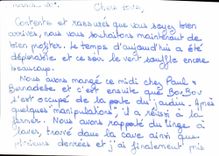 Chers tous,
Contents et rassurés que vous soyez bien
arrivés, nous vous souhaitons maintenant de
bien profiter. Le temps d'aujourd'hui a été
déplorable et ce soir le vent souffle encore
beaucoup.
Nous avons mangé ce midi chez Paul &
Bernadette et c'est ensuite que
s'est occupé de la porte du jardin. Après
quelques manipulations, il a réussi à la
fermer. Nous avons rapporté du linge à
laver, trouvé dans la cave ainsi que
plusieurs denrées et j'ai finalement mis